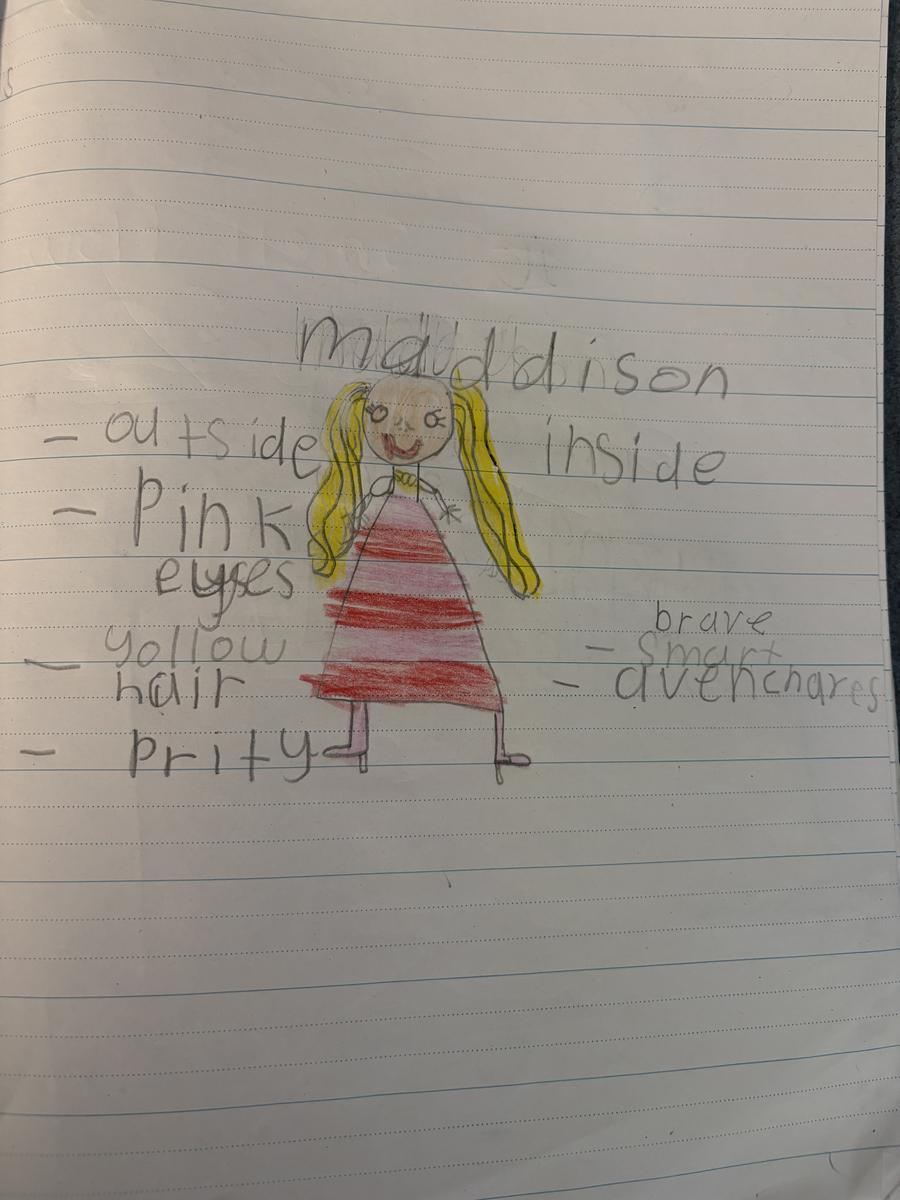 maddison
- outside
- Pink
eyses
- yollow
hair
- prity
inside
brave
- Smart
- avenchares